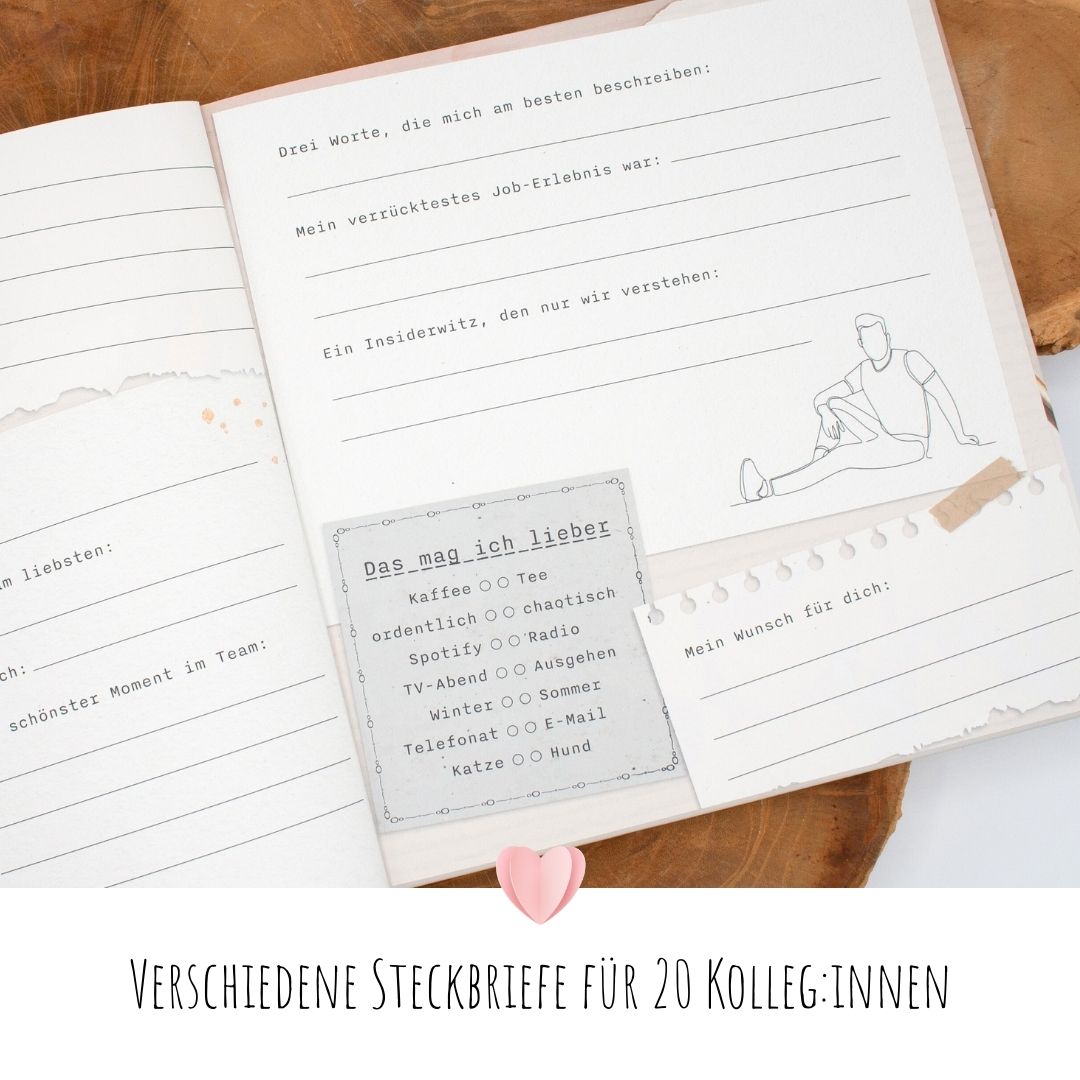 m liebsten:
ch:
schönster Moment im Team:
Drei Worte, die mich am besten beschreiben:
Mein verrücktestes Job-Erlebnis war:
Ein Insiderwitz, den nur wir verstehen:
Das mag ich lieber
Kaffee ○ ○ Tee
ordentlich ○ ○ chaotisch
Spotify ○ ○ Radio
TV-Abend ○ ○ Ausgehen
Winter ○ ○ Sommer
Telefonat ○ ○ E-Mail
Katze ○ ○ Hund
Mein Wunsch für dich:
Verschiedene Steckbriefe für 20 Kolleg:innen